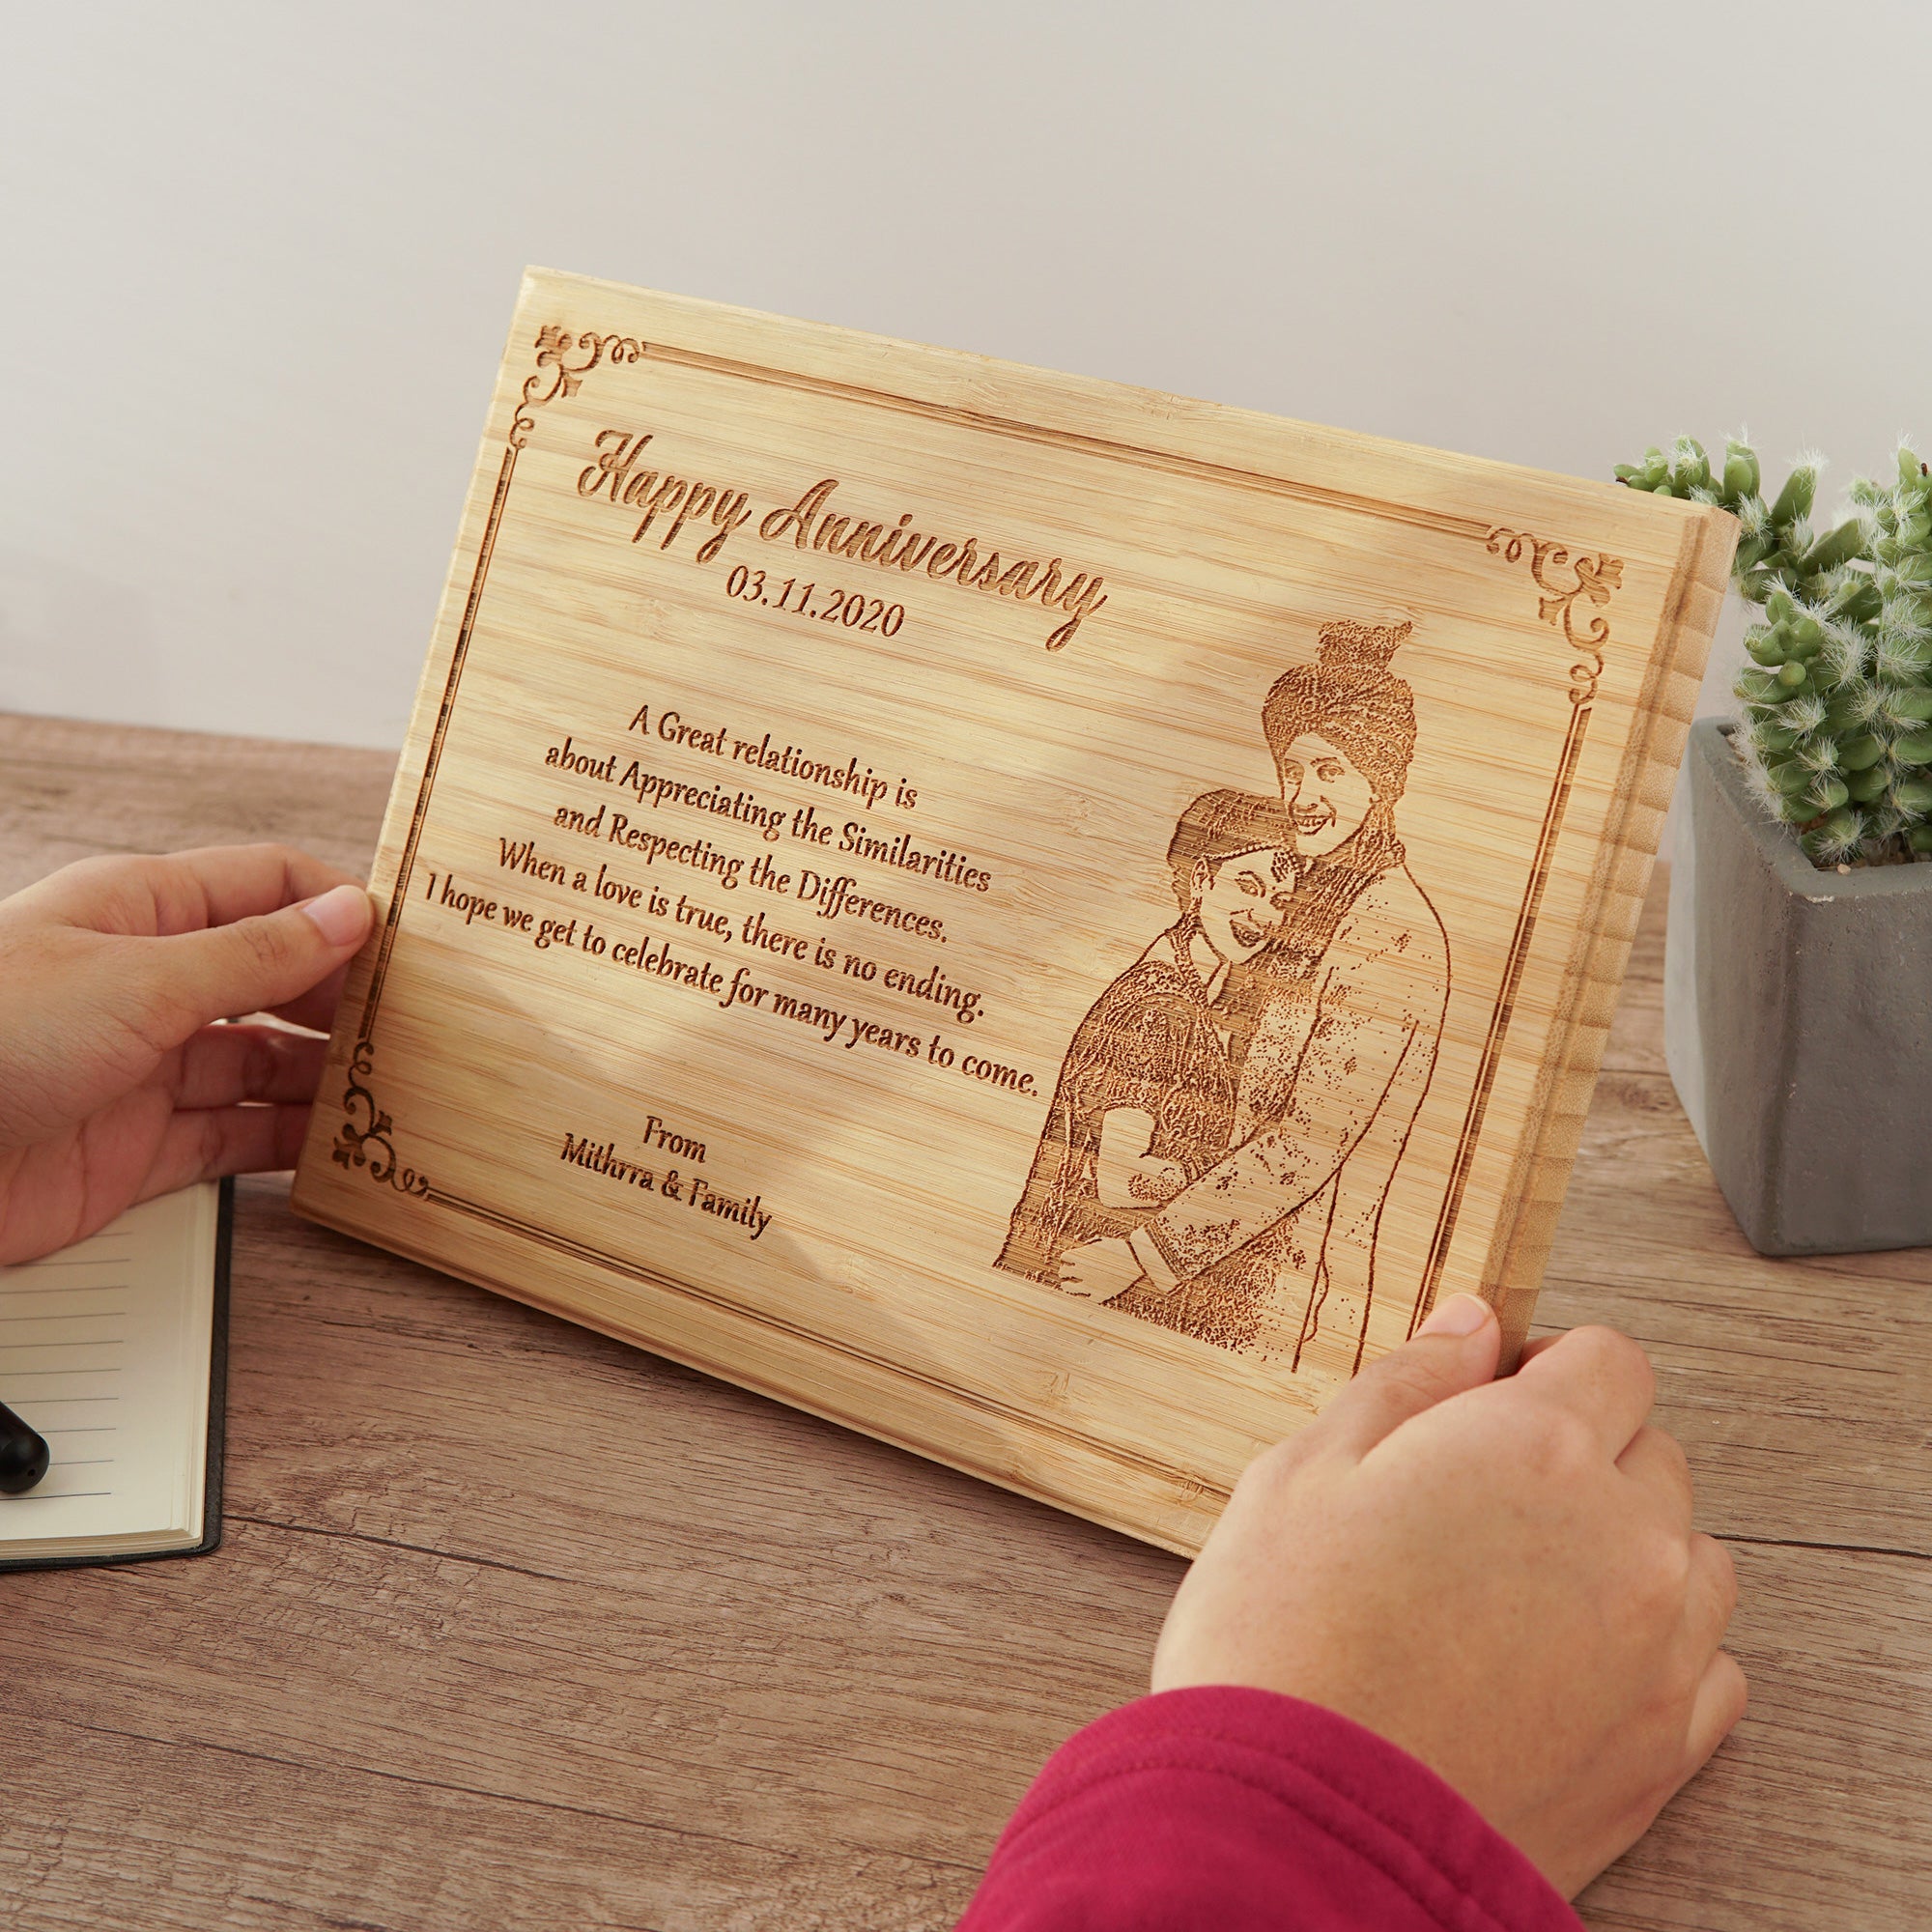 Happy Anniversary
03.11.2020
A Great relationship is
about Appreciating the Similarities
and Respecting the Differences.
When a love is true, there is no ending.
I hope we get to celebrate for many years to come.
From
Mithrra & Family